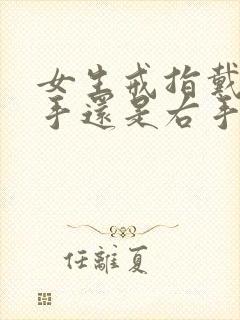 女生戒指戴
手還是右手
任離夏